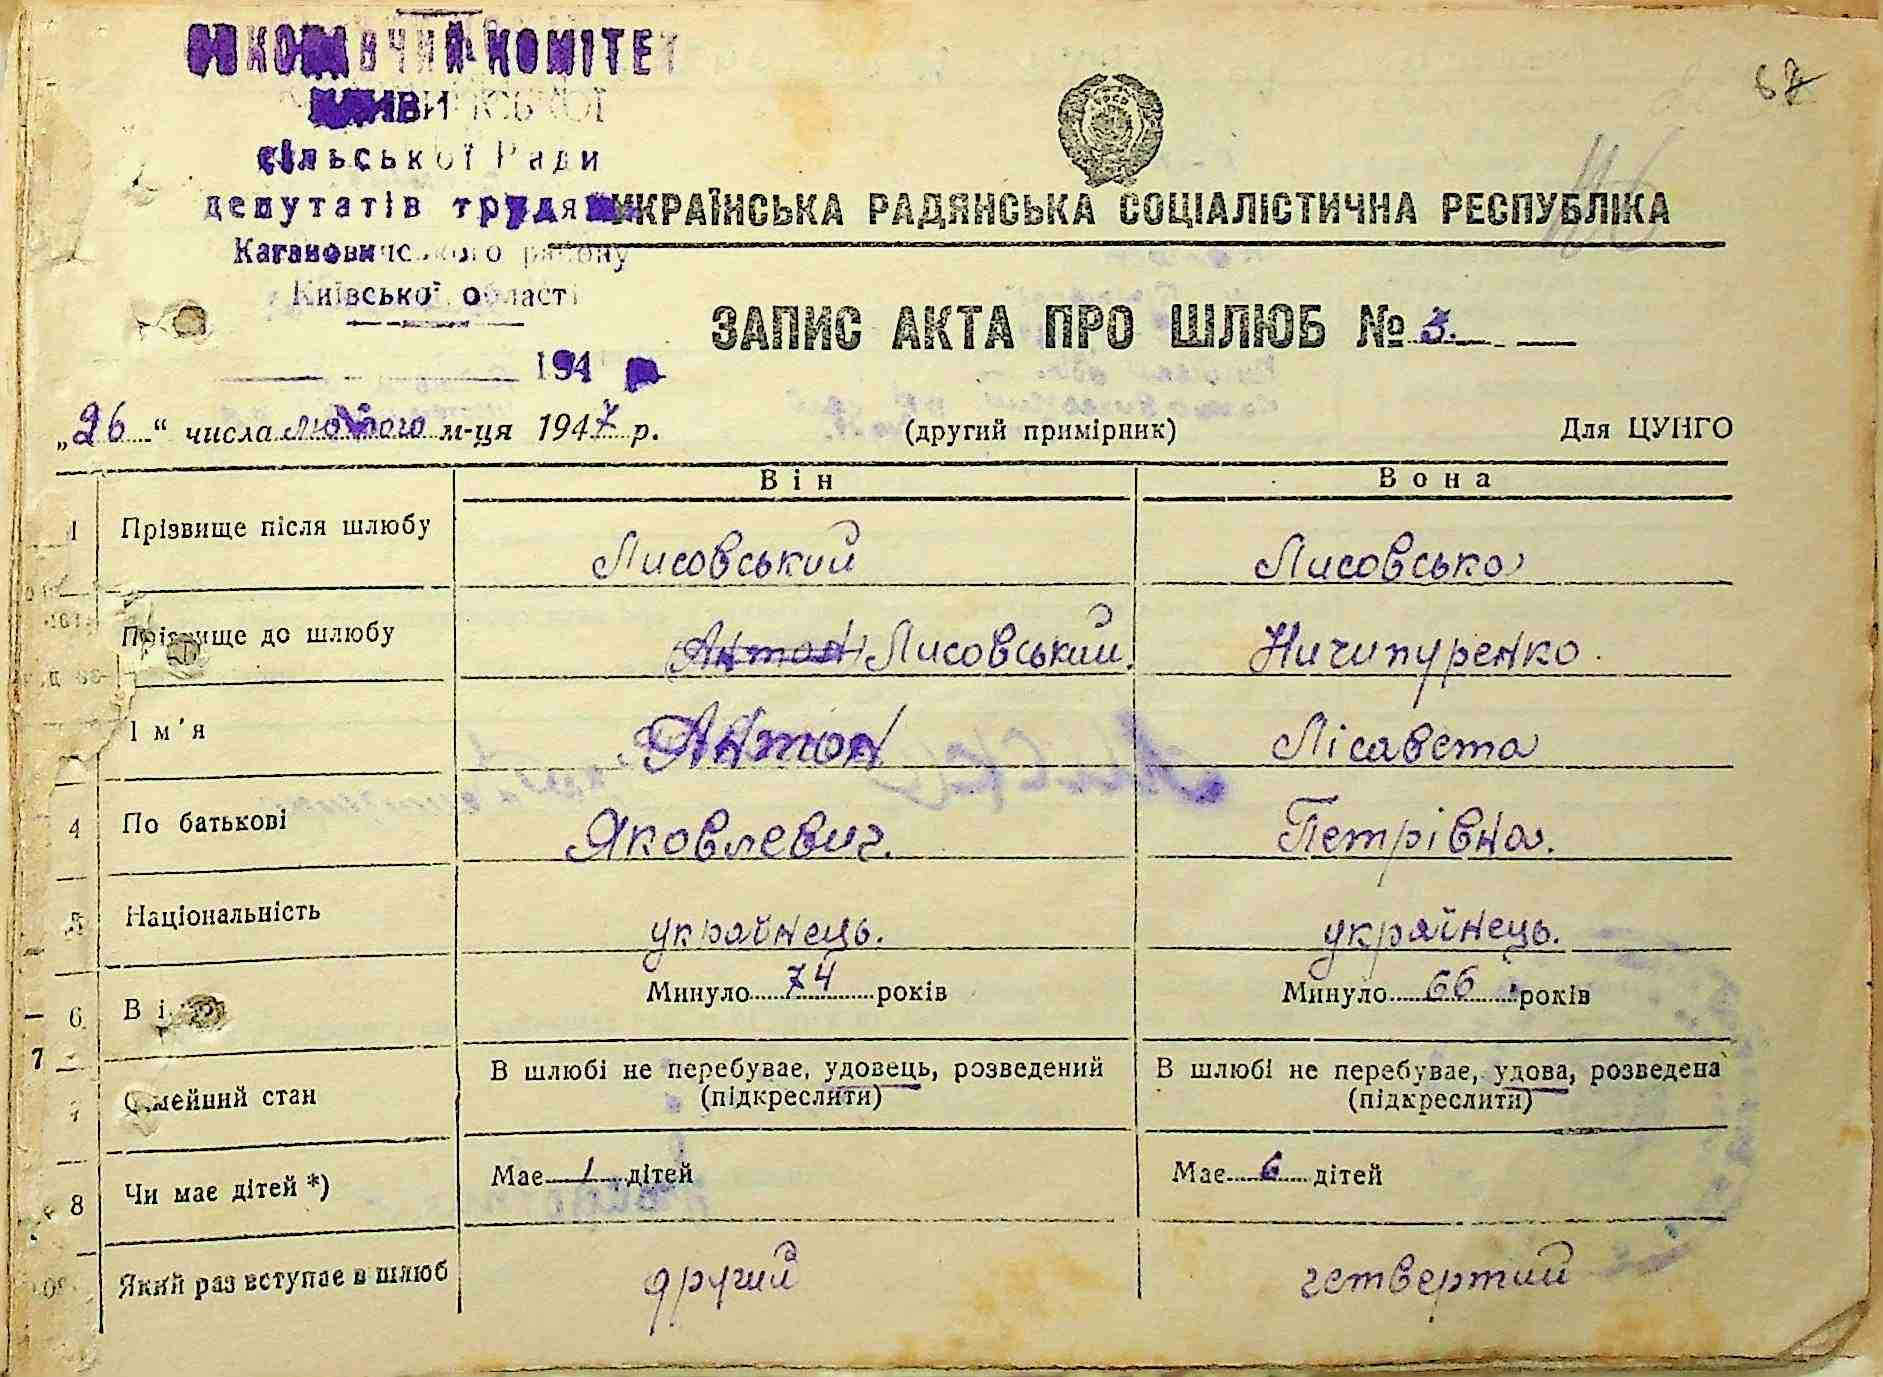 КОМІТЕТ
сільської Ради
депутатів
Кагановичського району
Київської області
67
УКРАЇНСЬКА РАДЯНСЬКА СОЦІАЛІСТИЧНА РЕСПУБЛІКА
ЗАПИС АКТА ПРО ШЛЮБ № 3.
194
„26“ числа лютого м-ця 1947 р. (другий примірник) Для ЦУНГО
Він Вона
1 Прізвище після шлюбу Лисовський Лисовська
Прізвище до шлюбу Антон Лисовський. Ничипуренко.
Ім'я Антон Лісавета
4 По батькові Яковлевич. Петрівна.
5 Національність українець. українець.
6 Ві Минуло 74 років Минуло 66 років
7
7 Сімейний стан В шлюбі не перебуває, удовець, розведений В шлюбі не перебуває, удова, розведена
(підкреслити) (підкреслити)
8 Чи має дітей *) Має 1 дітей Має 6 дітей
Який раз вступає в шлюб другий четвертий